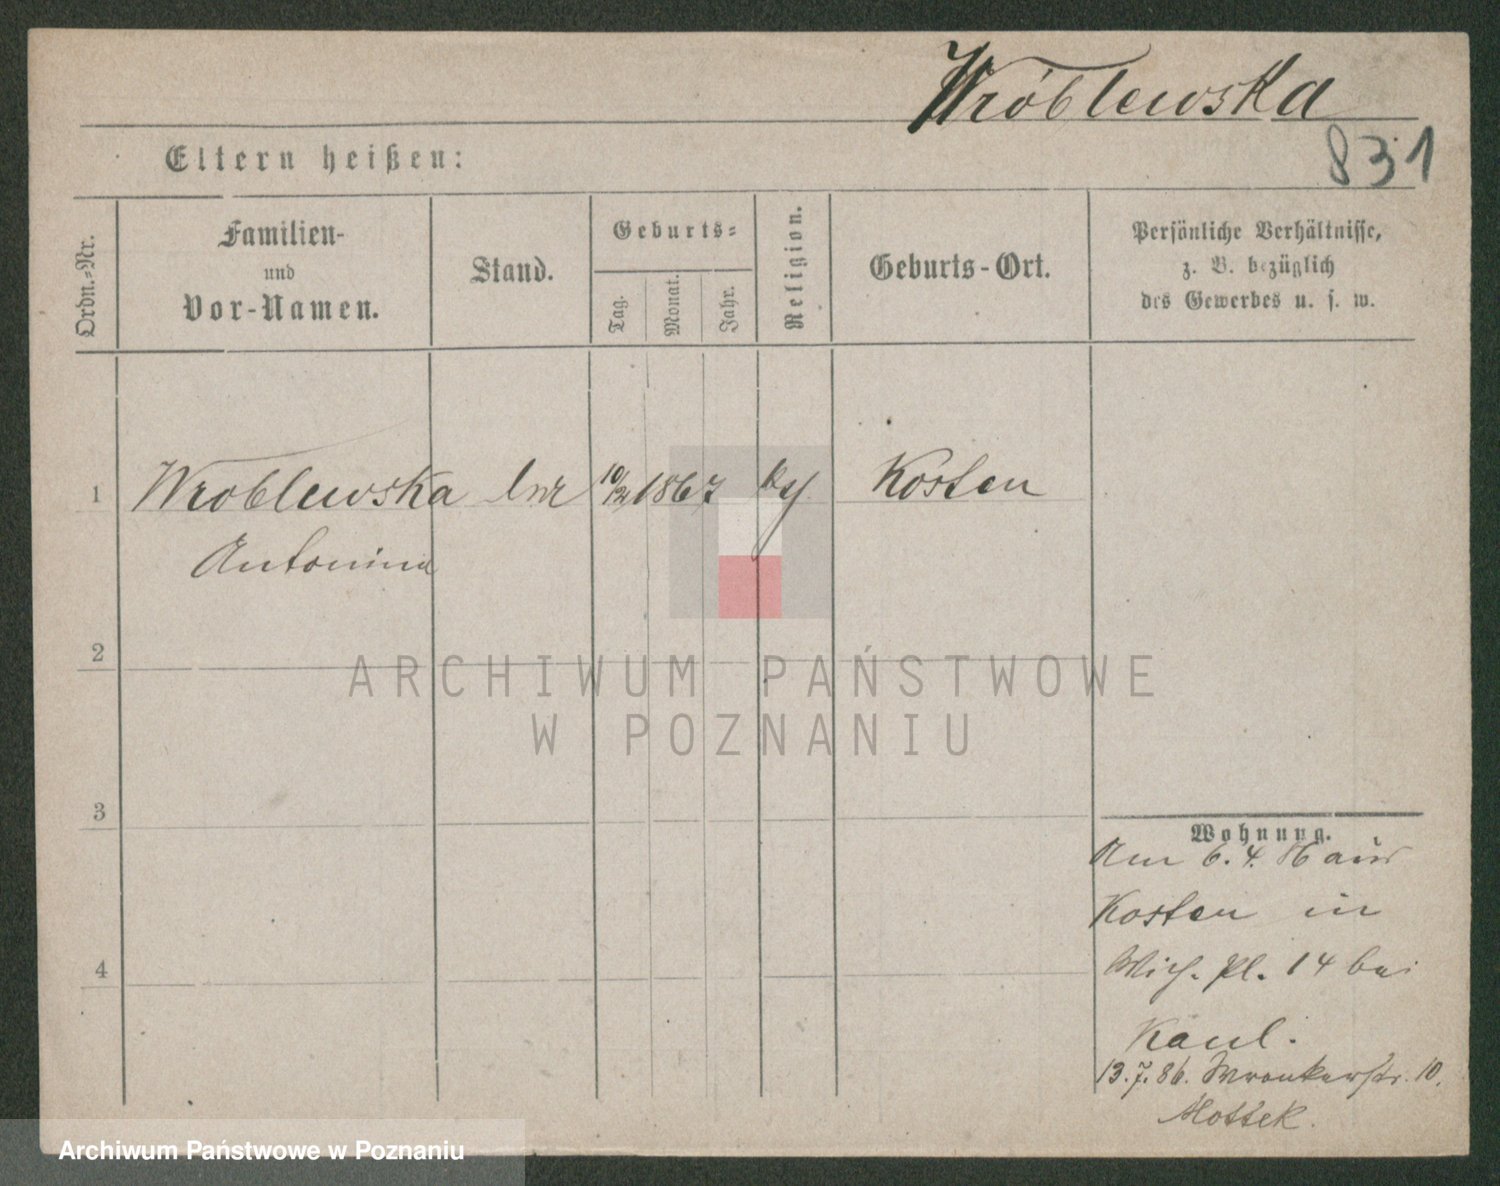 Wróblewska
831
Eltern heißen:
Ordn.-Nr.
Familien-
und
Vor-Namen.
Stand.
Geburts-
Tag.
Monat.
Jahr.
Religion.
Geburts-Ort.
Persönliche Verhältnisse,
z. B. bezüglich
des Gewerbes u. s. w.
1 Wroblewska 10/12 1867 Kosten
Antonina
2
3
4
Wohnung.
Am 6. 4. 86 aus
Kosten in
Pl. 14 bei
Kaul.
13. 7. 86. Wronkerstr. 10.
Mottek.
ARCHIWUM PAŃSTWOWE
W POZNANIU
Archiwum Państwowe w Poznaniu